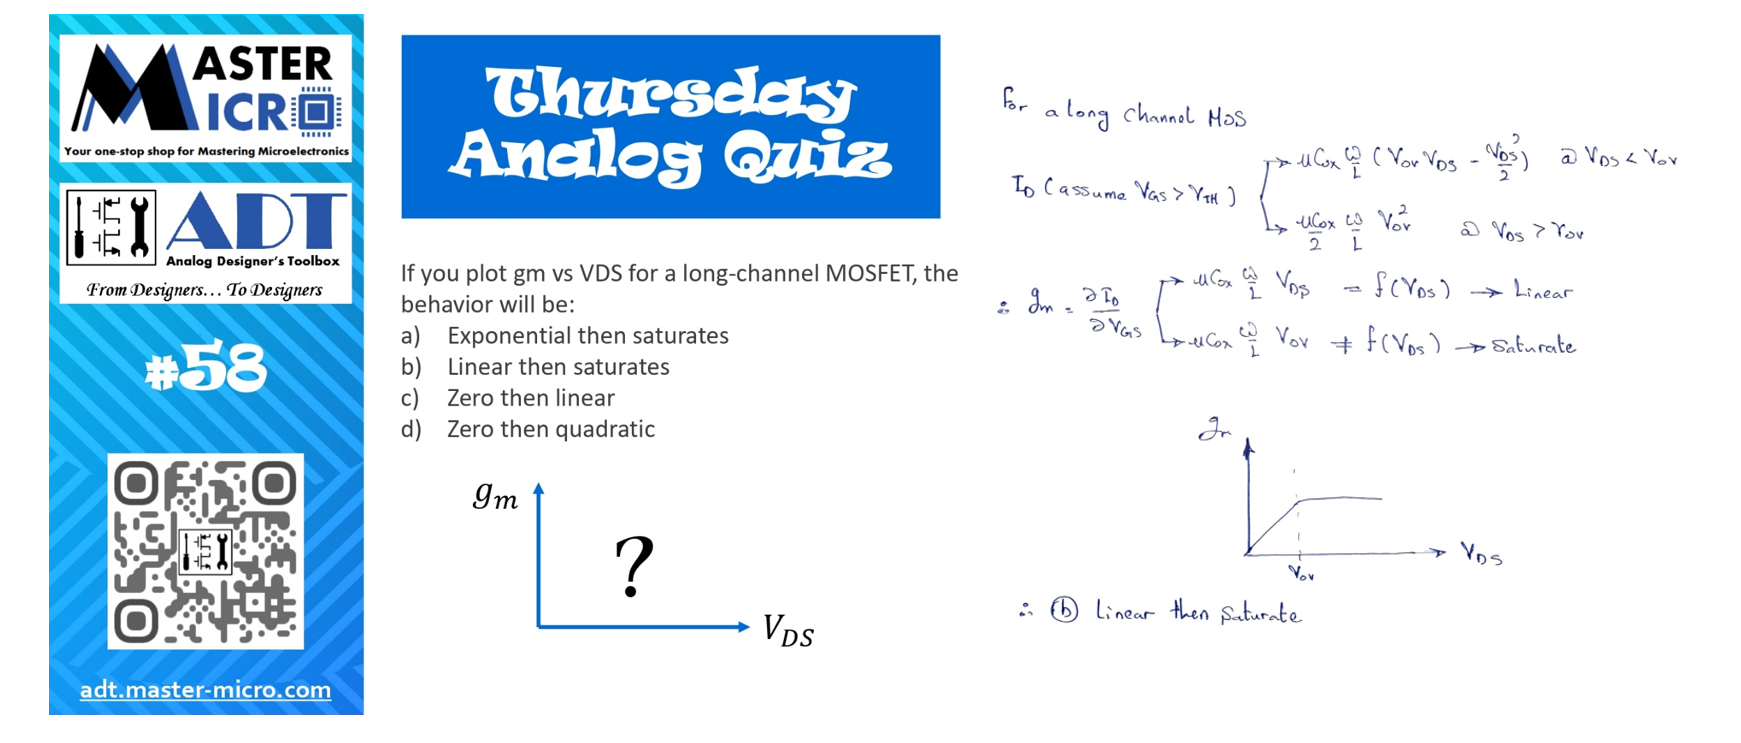 MASTER
MICRO
Your one-stop shop for Mastering Microelectronics
ADT
Analog Designer's Toolbox
From Designers... To Designers
#58
adt.master-micro.com
Thursday
Analog Quiz
If you plot gm vs VDS for a long-channel MOSFET, the
behavior will be:
a) Exponential then saturates
b) Linear then saturates
c) Zero then linear
d) Zero then quadratic
gm
?
VDS
For a long channel MOS
ID (assume VGS > VTH)
→ μCox W/L (Vov VDS - VDS²/2) @ VDS < Vov
→ μCox/2 W/L Vov² @ VDS > Vov
∴ gm = ∂ID/∂VGS
→ μCox W/L VDS = f(VDS) → Linear
→ μCox W/L Vov ≠ f(VDS) → Saturate
gm
VDS
Vov
∴ (b) Linear then Saturate